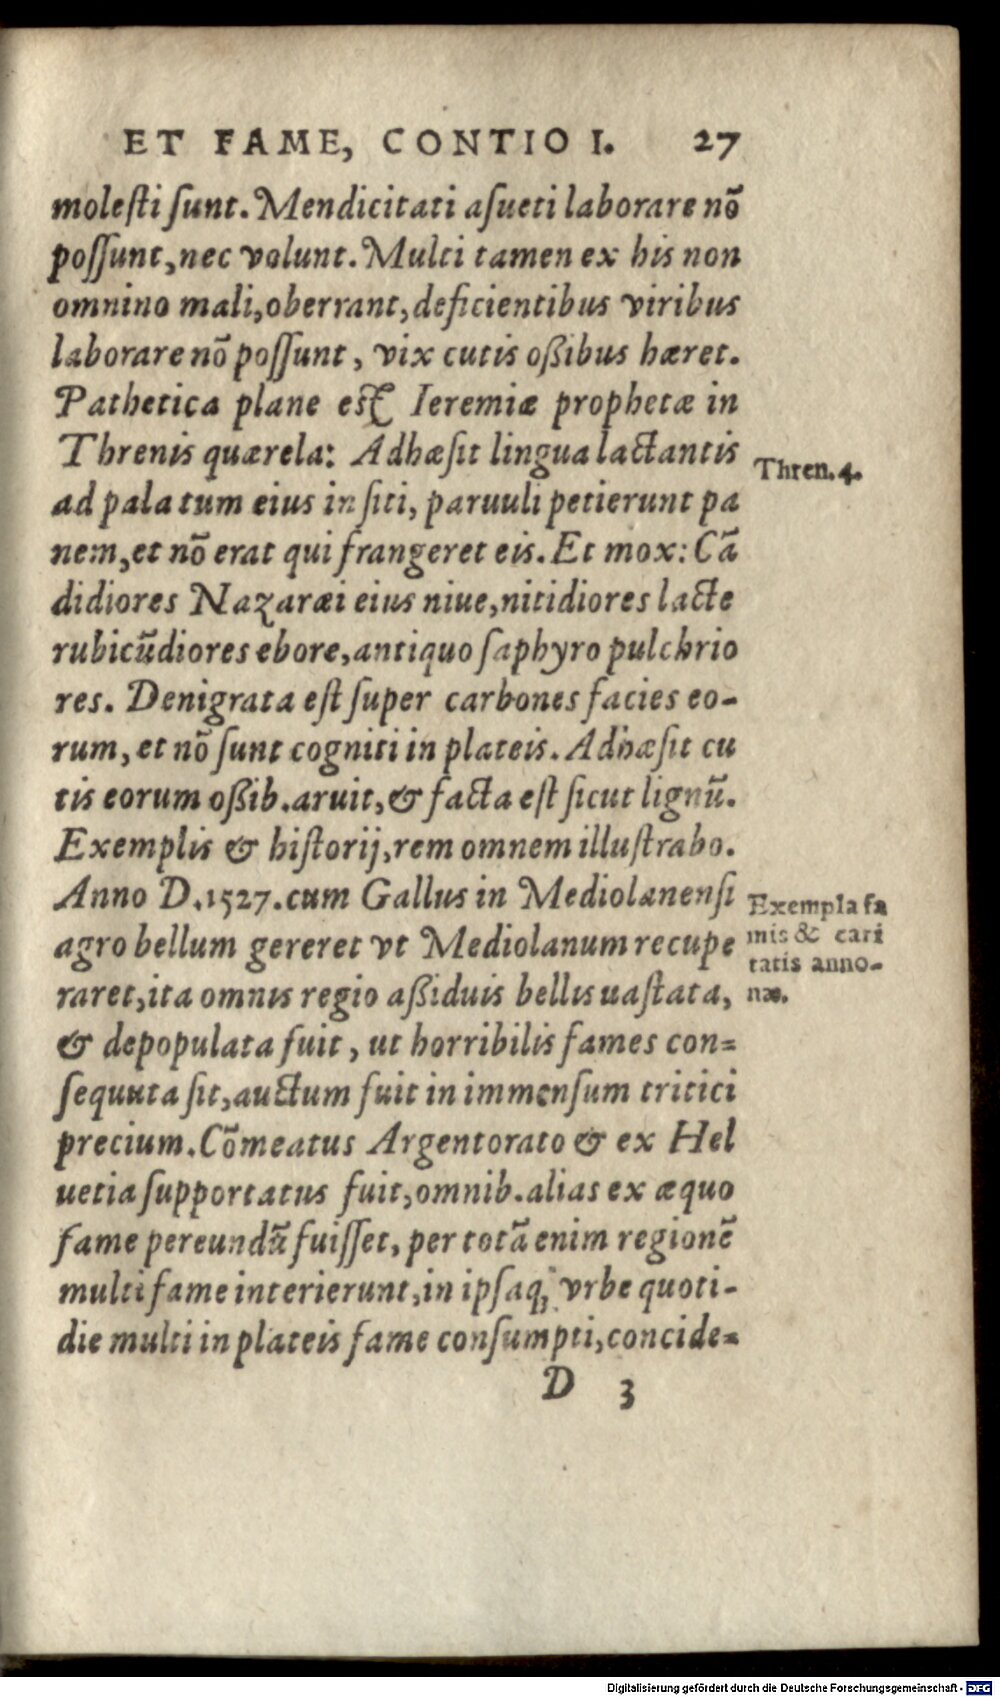 ET FAME, CONTIO I. 27
molesti sunt. Mendicitati asueti laborare nõ
possunt, nec volunt. Multi tamen ex his non
omnino mali, oberrant, deficientibus viribus
laborare nõ possunt, vix cutis oßibus hæret.
Pathetica plane est Ieremiæ prophetæ in
Threnis quærela: Adhæsit lingua lactantis
Thren. 4.
ad palatum eius in siti, paruuli petierunt pa
nem, et nõ erat qui frangeret eis. Et mox: Cã
didiores Nazaræi eius niue, nitidiores lacte
rubicũdiores ebore, antiquo saphyro pulchrio
res. Denigrata est super carbones facies eo-
rum, et nõ sunt cogniti in plateis. Adhæsit cu
tis eorum oßib. aruit, & facta est sicut lignũ.
Exemplis & historij, rem omnem illustrabo.
Anno D. 1527. cum Gallus in Mediolanensi
agro bellum gereret vt Mediolanum recupe
raret, ita omnis regio aßiduis bellis uastata,
Exempla fa
mis & cari
tatis anno-
næ.
& depopulata fuit, ut horribilis fames con=
sequuta sit, auctum fuit in immensum tritici
precium. Cõmeatus Argentorato & ex Hel
uetia supportatus fuit, omnib. alias ex æquo
fame pereundũ fuisset, per totã enim regionẽ
multi fame interierunt, in ipsaq; vrbe quoti-
die multi in plateis fame consumpti, concide=
D 3
Digitalisierung gefördert durch die Deutsche Forschungsgemeinschaft - DFG